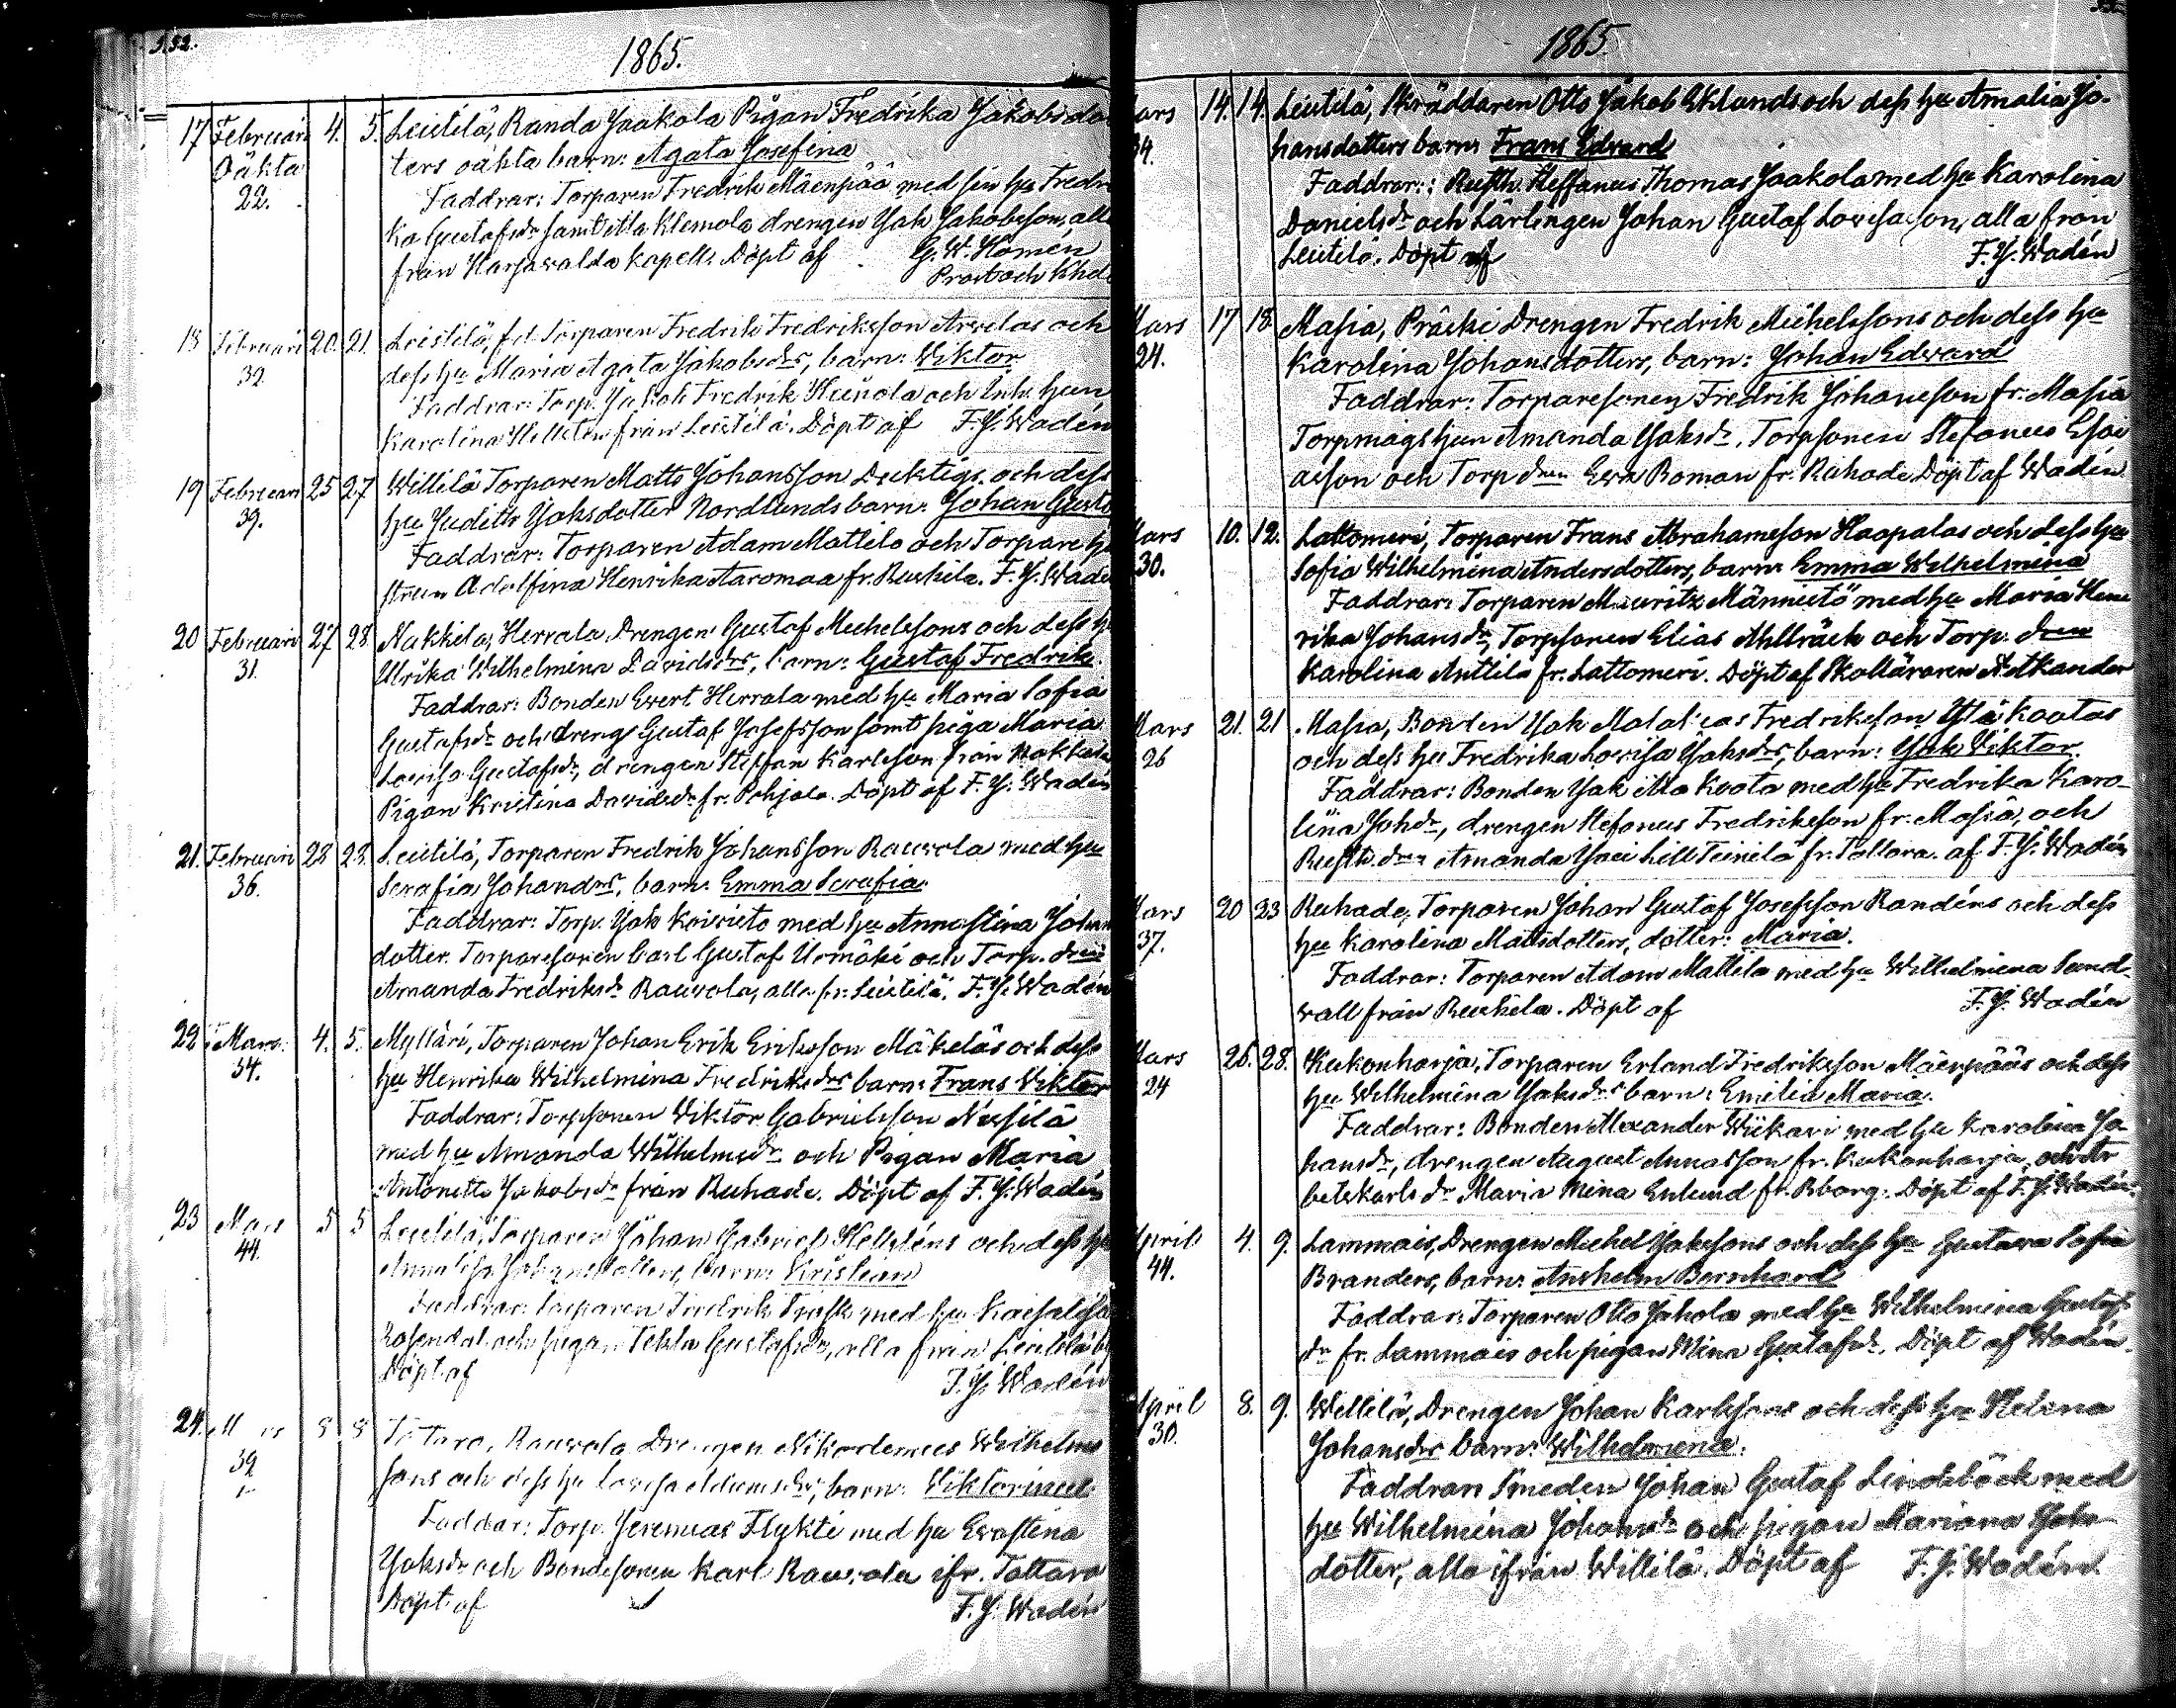 532.
1865.
17 Februari 4. 5. Leistilä, Randa Jaakola Pigan Fredrika Jakobsdot
Oäkta ters oäkta barn: Agata Josefina
22. Faddrar: Torparen Fredrik Mäenpää med sin hu Fredri
ka Gustafsdr samt drengen Jak Jakobsson, alla
från Harjawalda kapell. Döpt af G. W. Homén
Prost och Khde
18 Februari 20. 21. Leistilä, Torparen Fredrik Fredriksson Arvelas och
39. dess hu Maria Agata Jakobsdrs, barn: Wiktor
Faddrar: Torp. Jakob Fredrik Heinola och Inh. hun
Karolina Hellsten från Leistilä. Döpt af F. J. Wadén
19 Februari 25 27 Willilä Torparen Matts Johansson och dess
39. hu Judith Jaksdotter Nordlunds barn: Johan Gusta
Faddrar: Torparen Adam Mattila och Torpare hu
Adolfina Henrika Aaromaa fr. Ruskila. F. J. Wadé
20 Februari 27 28 Nakkila, Herrala Drengen Gustaf Michelssons och dess hu
31. Ulrika Wilhelmina Davidsdrs, barn: Gustaf Fredrik.
Faddrar: Bonden Evert Herrala med hu Maria Sofia
Gustafsdr och dreng Gustaf Josefsson samt piga Maria
Lovisa Gustafsdr, drengen Steffan Karlsson från Nakkila
Pigan Kristina Davidsdr fr. Pohjala. Döpt af F. J. Wadén
21. Februari 28 28. Leistilä, Torparen Fredrik Johansson Rauvola med hu
36. Serafia Johansdrs, barn: Emma Serafia.
Faddrar: Torp. Jak Koivisto med hu Anna Stina Johan
dotter. Torparesonen Carl Gustaf Uomäki och Torp. dren
Amanda Fredriksdr Rauvola, alla fr. Leistilä. F. J. Wadén
22 Mars 4. 5. Mylläri, Torparen Johan Erik Eriksson Mäkeläs och dess
34. hu Henrika Wilhelmina Fredriksdrs barn: Frans Viktor
Faddrar: Torpsonen Wiktor Gabrielsson Nissilä
med hu Amanda Wilhelmsdr och Pigan Maria
Antonetta Jakobsdr från Ruhade. Döpt af F. J. Wadén
23 Mars 5 5 Leistilä, Torparen Johan Gabriel Hellsténs och dess hu
44. Anna Lisa Johansdotters, barn: Kristian
Faddrar: Torparen Fredrik Trast med hu Kaisa Lisa
Rosendal och pigan Tekla Gustafsdr, alla från Leistilä by
Döpt af F. J. Wadén
24. Mars 8 8 Tattara, Rauvola Drengen Nikodemus Wilhelms
39 sons och dess hu Lovisa Adamsdrs, barn: Viktorinus.
Faddrar: Torp. Jeremias Flykti med hu Eva Stina
Jaksdr och Bondesonen Karl Rauvola ifr. Tattara
Döpt af F. J. Wadén
1865.
Mars 14. 14. Leistilä, Skräddaren Otto Jakob Eklunds och dess hu Amalia Jo-
34. hansdotters barn: Frans Edvard
Faddrar: Rusth. Steffanus Thomas Jaakola med hu Karolina
Danielsdr och Lärlingen Johan Gustaf Lovisason, alla från
Leistilä. Döpt af F. J. Wadén
Mars 17 18. Masia, Präski Drengen Fredrik Michelssons och dess hu
24. Karolina Johansdotters, barn: Johan Edvard
Faddrar: Torparesonen Fredrik Johansson fr. Masia
Torpmågs hun Amanda Jaksdr. Torpsonen Stefanus Esai
asson och Torp dren Eva Boman fr. Ruhade Döpt af Wadén
Mars 10. 12. Lattomeri, Torparen Frans Abrahamsson Haapalas och dess hu
30. Sofia Wilhelmina Andersdotters, barn: Emma Wilhelmina
Faddrar: Torparen Mauritz Männistö med hu Maria Hen
rika Johansdr, Torpsonen Elias Ahlbäck och Torp. dren
Karolina Anttila fr. Lattomeri. Döpt af Skolläraren Askander
Mars 21. 21. Masia, Bonden Jak Matatias Fredriksson Yli Kootas
26 och dess hu Fredrika Lovisa Jaksdrs, barn: Jak Viktor.
Faddrar: Bonden Jak Ala Koota med hu Fredrika Karo-
lina Johdr, drengen Stefanus Fredriksson fr. Masia, och
Rusth. dren Amanda Lill Teinilä fr. Tattara. af F. J. Wadén
Mars 20 23 Ruhade, Torparen Johan Gustaf Josefsson Randéns och dess
37. hu Karolina Mattsdotters, dotter: Maria.
Faddrar: Torparen Adam Mattila med hu Wilhelmina Sand-
vall från Ruskila. Döpt af F. J. Wadén
Mars 26. 28. Kukonharja, Torparen Erland Fredriksson Mäenpääs och dess
24 hu Wilhelmina Jaksdrs barn: Emilia Maria.
Faddrar: Bonden Alexander Wiikari med hu Karolina Jo
hansdr, drengen August Annasson fr. Kukonharja, och Ar
betskarls dr Maria Mina Enlund fr. Bborg. Döpt af F. J. Wadén.
April 4. 9. Lammais, Drengen Michel Jakssons och dess hu Gustava Sofia
44. Branders, barn: Anshelm Bernhard
Faddrar: Torparen Otto Jakola med hu Wilhelmina Gustafs
dr fr. Lammais och pigan Mina Gustafsdr. Döpt af Wadén.
April 8. 9. Willilä, Drengen Johan Karlssons och dess hu Helena
30. Johansdrs barn: Wilhelmina.
Faddrar: Smeden Johan Gustaf Lindblöck med
hu Wilhelmina Johansdr och pigan Mariana Jaks
dotter, alla ifrån Willilä. Döpt af F. J. Wadén.